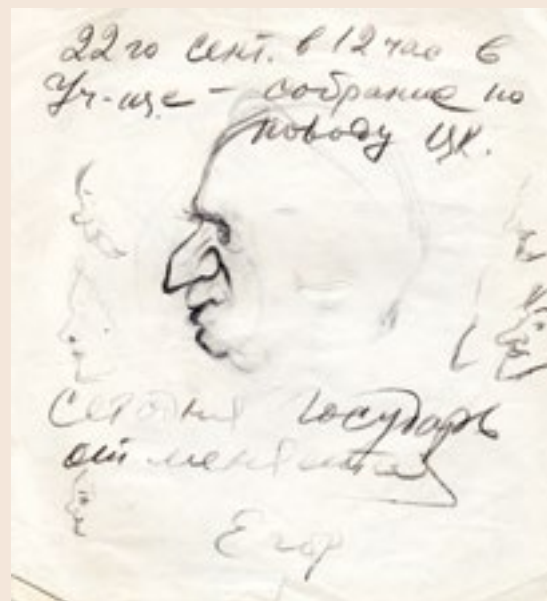 22го сент. в 12 час в
Уч-ще - собрание по
поводу ЦК.
Сегодня Государь
отменяется
Егор